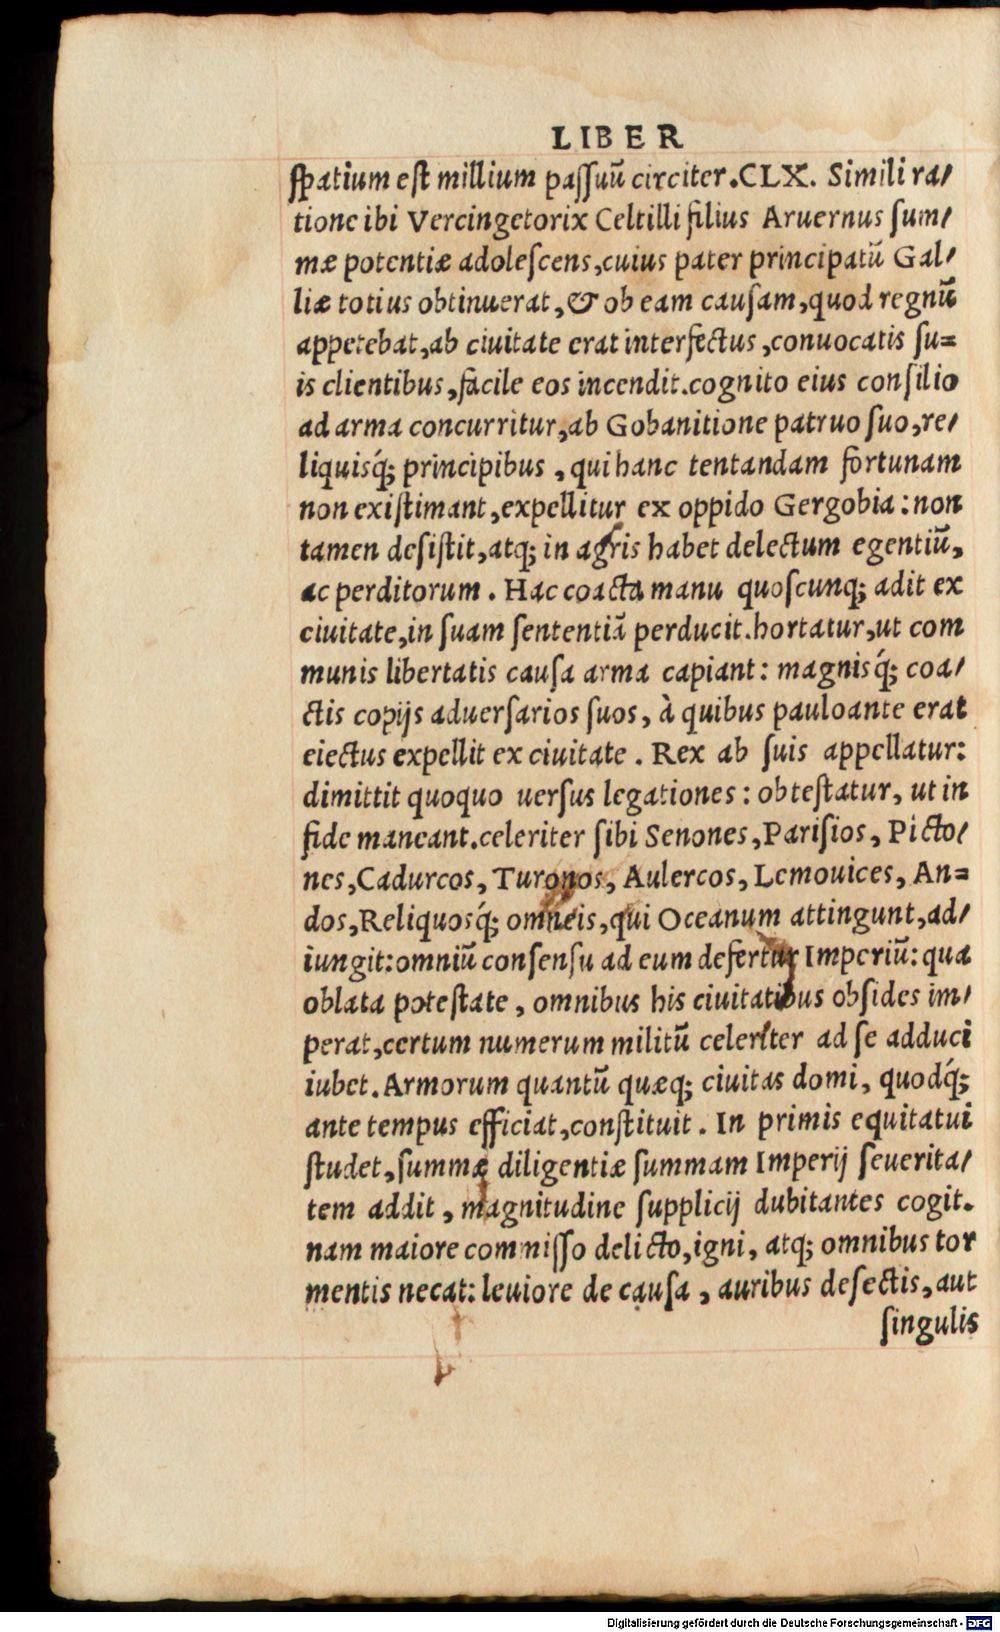 LIBER
ſpatium eſt millium paſſuū circiter.CLX. Simili ra/
tione ibi Vercingetorix Celtilli filius Aruernus ſum/
mæ potentiæ adoleſcens,cuius pater principatū Gal/
liæ totius obtinuerat,& ob eam cauſam,quod regnū
appetebat,ab ciuitate erat interfectus,conuocatis ſu=
is clientibus,facile eos incendit.cognito eius conſilio
ad arma concurritur,ab Gobanitione patruo ſuo,re/
liquisq́; principibus , qui hanc tentandam fortunam
non exiſtimant,expellitur ex oppido Gergobia : non
tamen deſiſtit,atq; in agris habet delectum egentiū,
ac perditorum . Hac coacta manu quoſcunq; adit ex
ciuitate,in ſuam ſententiā perducit.hortatur,ut com
munis libertatis cauſa arma capiant: magnisq́; coa/
ctis copijs aduerſarios ſuos, à quibus pauloante erat
eiectus expellit ex ciuitate . Rex ab ſuis appellatur:
dimittit quoquo uerſus legationes : obteſtatur, ut in
fide maneant.celeriter ſibi Senones,Pariſios, Picto/
nes,Cadurcos, Turonos, Aulercos, Lemouices, An=
dos,Reliquosq́; omneis,qui Oceanum attingunt,ad/
iungit:omniū conſenſu ad eum defertur Imperiū: qua
oblata poteſtate , omnibus his ciuitatibus obſides im/
perat,certum numerum militū celeriter ad ſe adduci
iubet. Armorum quantū quæq; ciuitas domi, quodq́;
ante tempus efficiat,conſtituit . In primis equitatui
ſtudet,ſummæ diligentiæ ſummam Imperij ſeuerita/
tem addit , magnitudine ſupplicij dubitantes cogit.
nam maiore commiſſo delicto,igni, atq; omnibus tor
mentis necat: leuiore de cauſa , auribus deſectis, aut
ſingulis
Digitalisierung gefördert durch die Deutsche Forschungsgemeinschaft - DFG